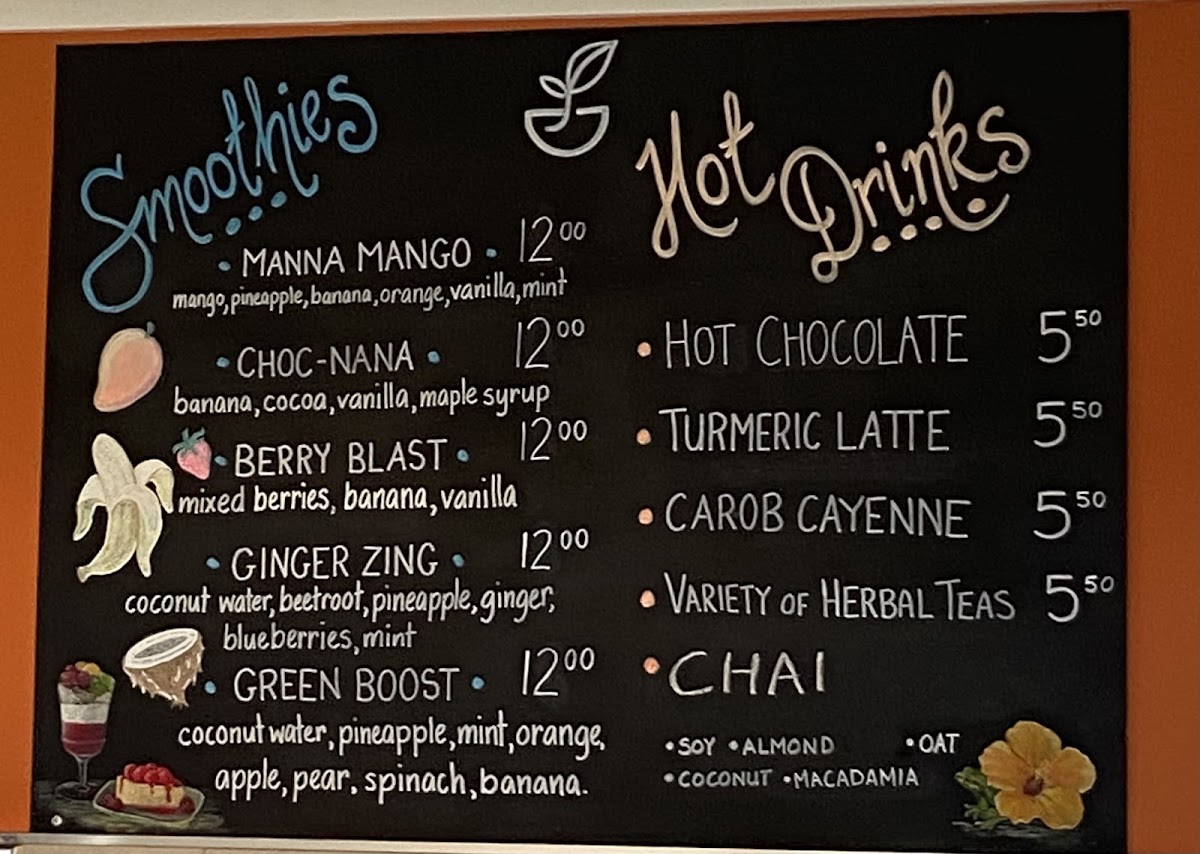 Smoothies
• MANNA MANGO • 12.00
mango, pineapple, banana, orange, vanilla, mint
• CHOC-NANA • 12.00
banana, cocoa, vanilla, maple syrup
• BERRY BLAST • 12.00
mixed berries, banana, vanilla
• GINGER ZING • 12.00
coconut water, beetroot, pineapple, ginger,
blueberries, mint
• GREEN BOOST • 12.00
coconut water, pineapple, mint, orange,
apple, pear, spinach, banana.
Hot Drinks
• HOT CHOCOLATE 5.50
• TURMERIC LATTE 5.50
• CAROB CAYENNE 5.50
• VARIETY OF HERBAL TEAS 5.50
• CHAI
• SOY • ALMOND • OAT
• COCONUT • MACADAMIA